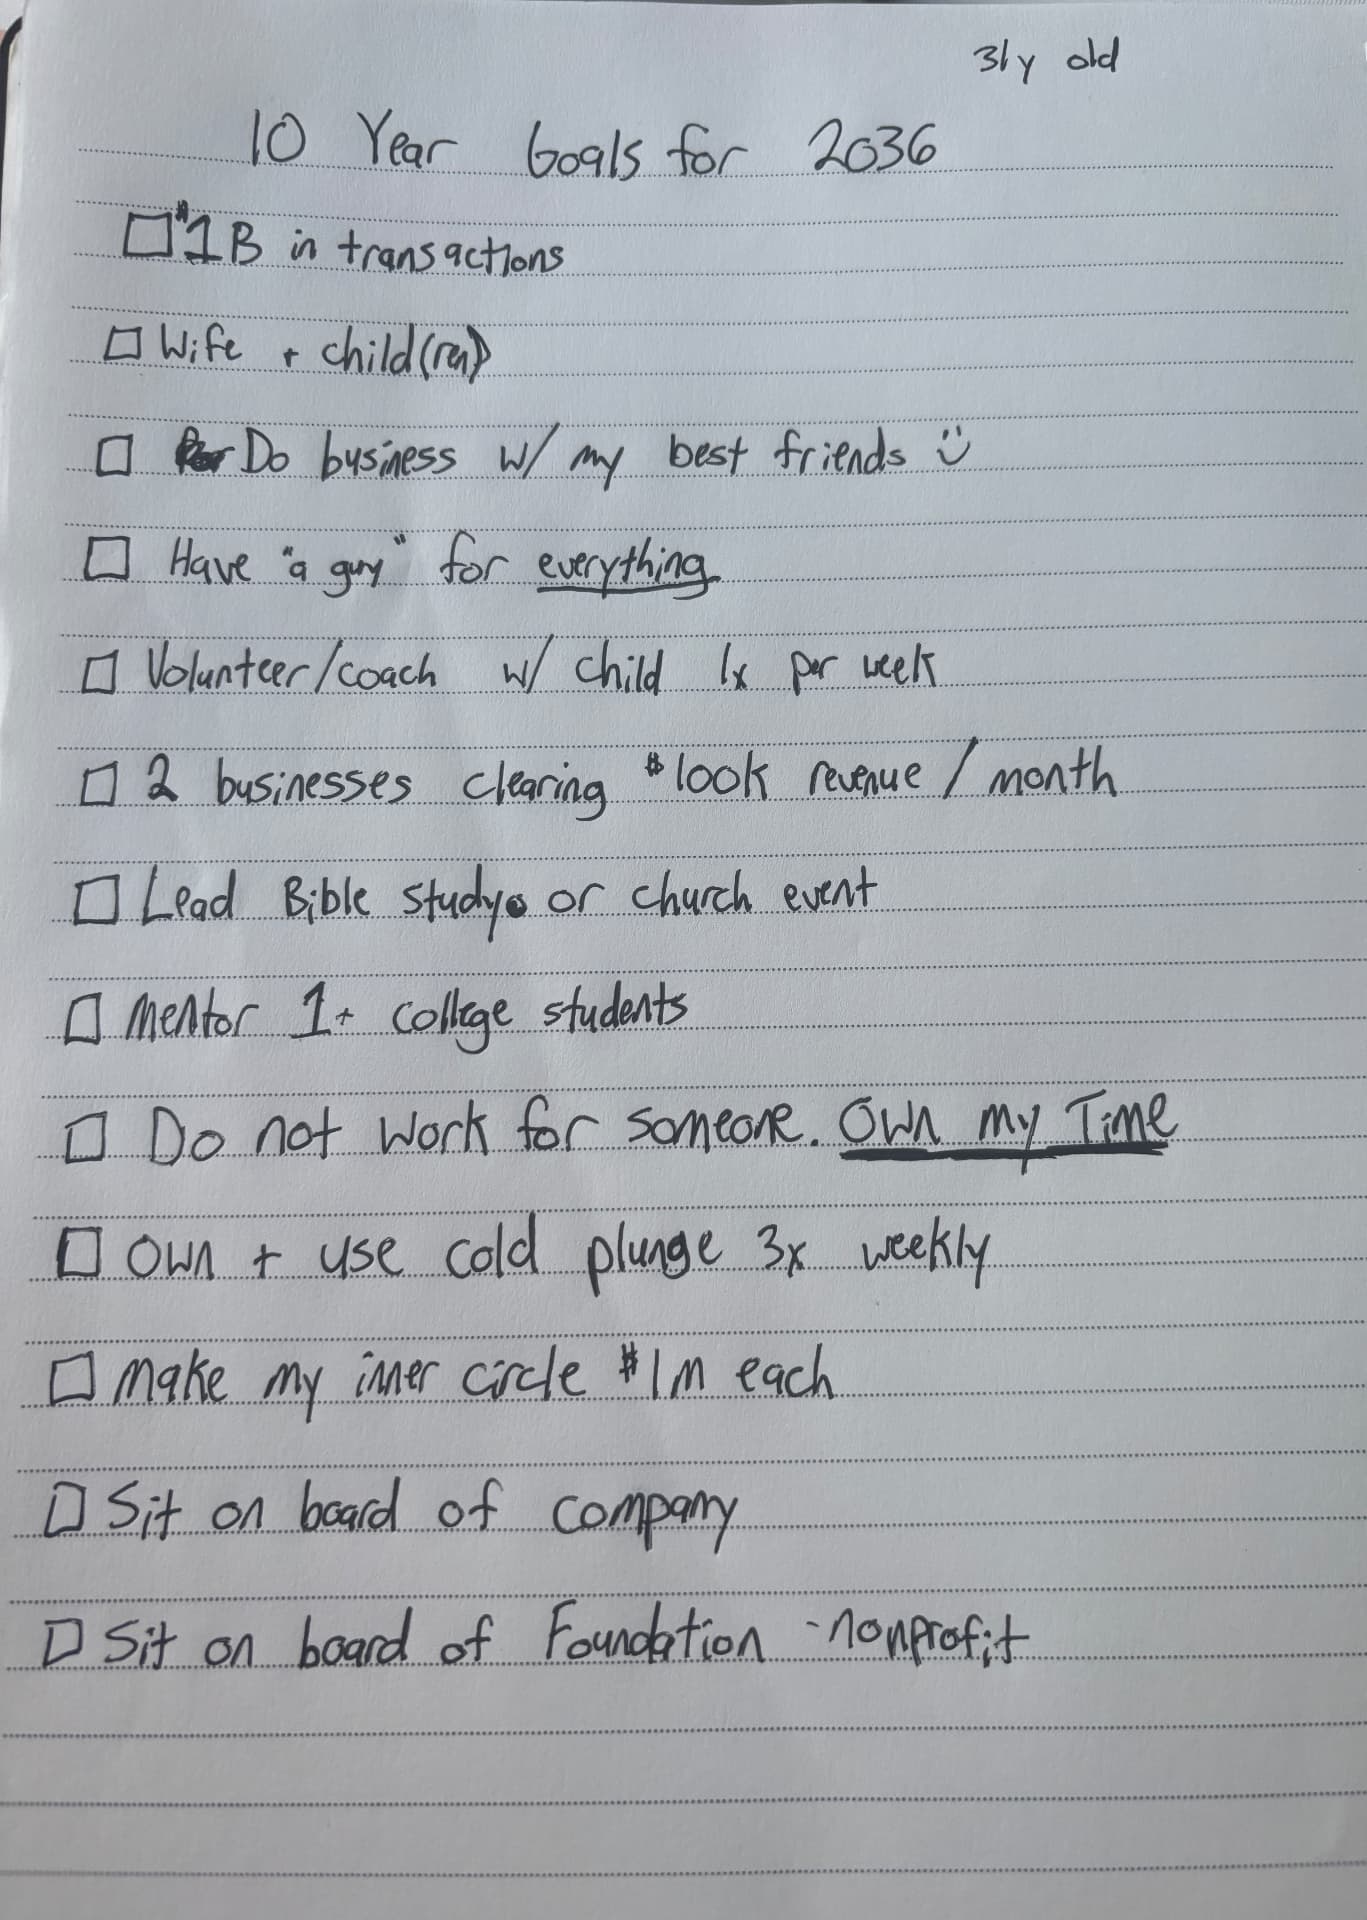 31y old
10 Year Goals for 2036
☐ $1B in transactions
☐ Wife + child(ren)
☐ Do business w/ my best friends :)
☐ Have "a guy" for everything
☐ Volunteer/coach w/ child 1x per week
☐ 2 businesses clearing $100k revenue / month
☐ Lead Bible study or church event
☐ Mentor 1+ college students
☐ Do not work for someone. Own my Time
☐ Own + use cold plunge 3x weekly
☐ Make my inner circle $1M each
☐ Sit on board of company
☐ Sit on board of Foundation - nonprofit